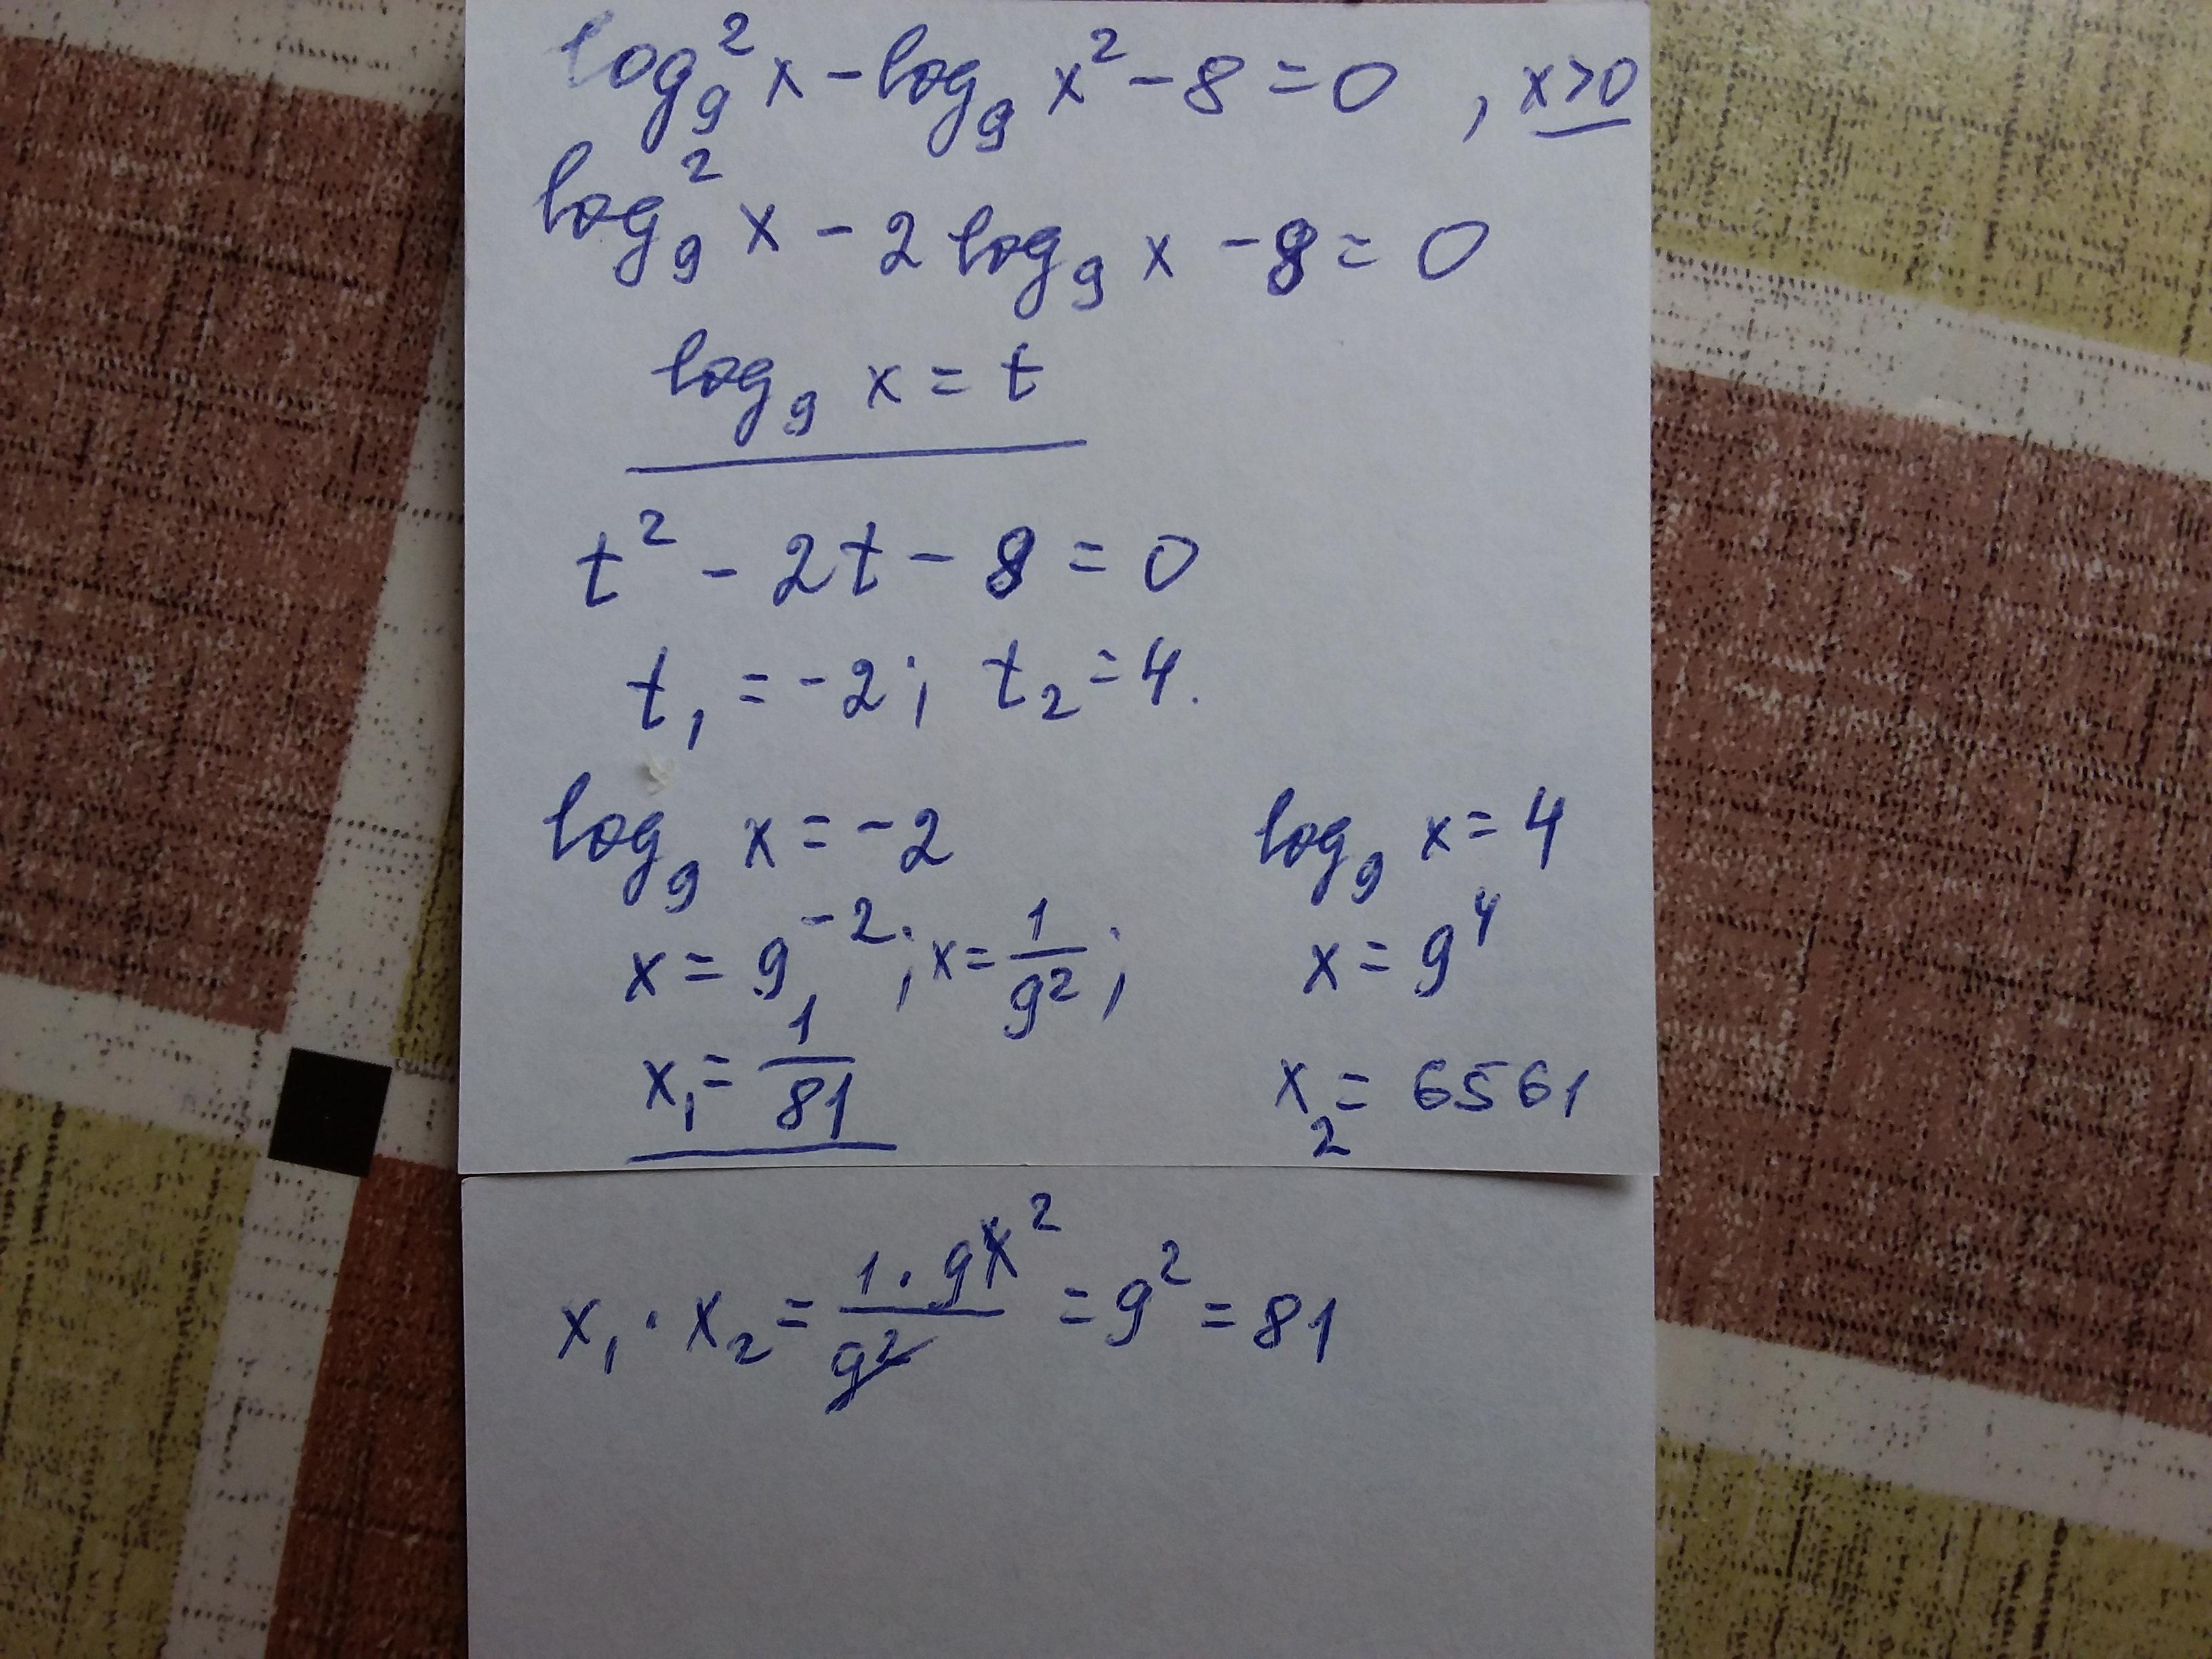 log₉² x - log₉ x² - 8 = 0 , x>0
log₉² x - 2 log₉ x - 8 = 0
log₉ x = t
t² - 2t - 8 = 0
t₁ = -2; t₂ = 4.
log₉ x = -2 log₉ x = 4
x = 9⁻²; x = 1/9²; x = 9⁴
x₁ = 1/81 x₂ = 6561
x₁ · x₂ = 1 · 9⁴ ² / 9² = 9² = 81